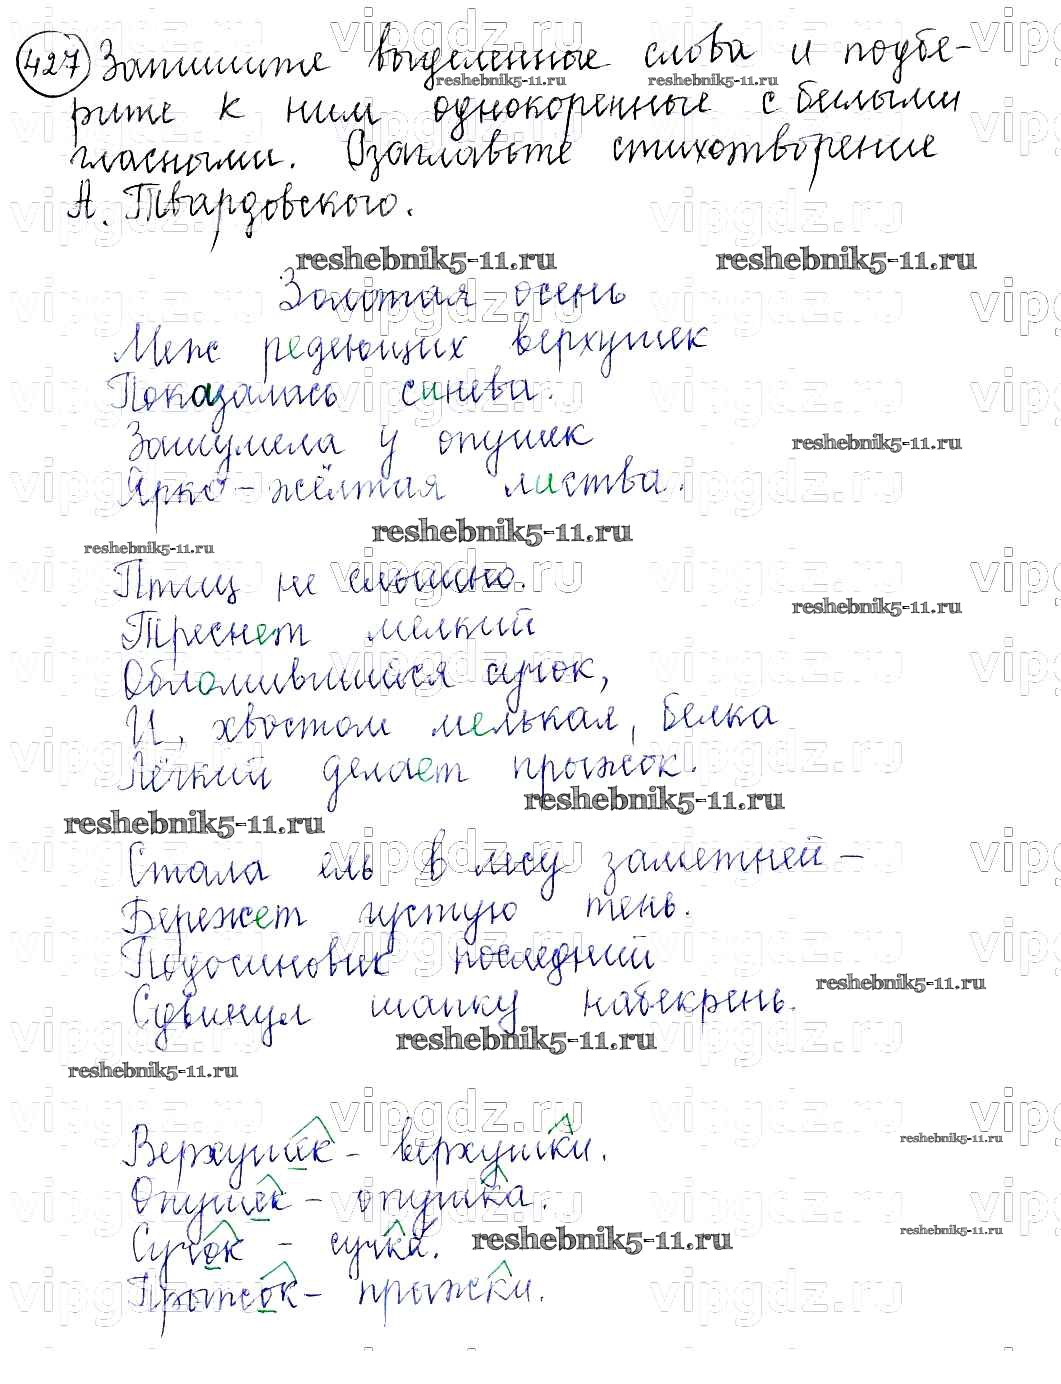 427 Запишите выделенные слова и подбе-
рите к ним однокоренные с беглыми
гласными. Озаглавьте стихотворение
А. Твардовского.
Золотая осень
Меж редеющих верхушек
Показалась синева.
Зашумела у опушек
Ярко-жёлтая листва.
Птиц не слышно.
Треснет мелкий
Обломившийся сучок,
И, хвостом мелькая, белка
Лёгкий делает прыжок.
Стала ель в лесу заметней –
Бережёт густую тень.
Подосиновик последний
Сдвинул шапку набекрень.
Верхушек – верхушки.
Опушек – опушка.
Сучок – сучка.
Прыжок – прыжки.
vipgdz.ru
reshebnik5-11.ru